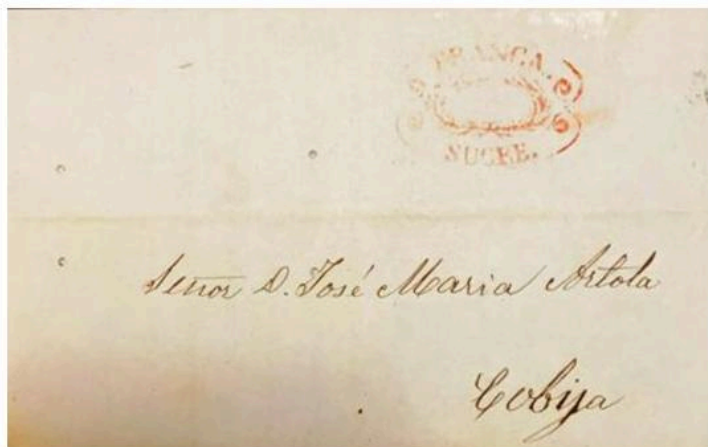 FRANCA.
SUCRE.
Señor D. José Maria Artola
Cobija